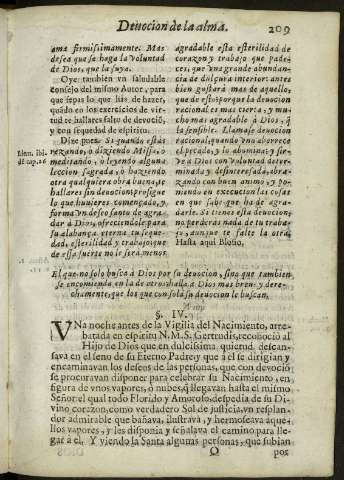 Deuocion de la alma.
209
ame firmissimamente. Mas
desea que se haga la voluntad
de Dios, que la suya.
Oye tambien vn saludable
consejo del mismo Autor, para
que sepas lo que has de hazer,
quando en los exercicios de vir-
tud te hallares falto de deuociõ,
y con sequedad de espiritu.
Dize pues. Si quando estàs
rezando, o diziendo Missa, o
meditando, o leyendo alguna
leccion sagrada, o haziendo
otra qualquiera obra buena, te
hallares sin deuocion, prosigue
lo que huuieres començado, y
forma vn deseo santo de agra-
dar à Dios, ofreciendole para
su alabança eterna tu seque-
dad, esterilidad y trabajo, que
de essa suerte no le serà menos
Idem. ibi-
dē cap. 26
agradable esta esterilidad de
corazon y trabajo que pade-
ces, que vna grande abundan-
cia de dulçura interior: antes
bien gustarà mas de aquello,
que de esto; porque la deuocion
racional es mas cierta, y mu-
cho mas agradable à Dios, q̃
la sensible. Llamase deuocion
racional, quando vno aborrece
el pecado, y lo abomina; y sir-
ve à Dios con voluntad deter-
minada, y desinteresada, abra-
zando con buen animo, y po-
niendo en execucion las cosas
en que sabe que ha de agra-
darle. Si tienes esta deuocion,
no perderàs nada de tu traba-
jo, aunque te falte la otra.
Hasta aqui Blosio.
El que no solo busca à Dios por su deuocion, sino que tambien
se encomienda en la de otros, halla à Dios mas breue, y dere-
chamente, que los que con sola su deuocion le buscan.
§. IV.
VNa noche antes de la Vigilia del Nacimiento, arre-
batada en espiritu N. M. S. Gertrudis, reconociò al
Hijo de Dios que en dulcissima quietud descan-
sava en el seno de su Eterno Padre, y que à èl se dirigian y
encaminavan los deseos de las personas, que con devociõ
se procuravan disponer para celebrar su Nacimiento, en
figura de vnos vapores, ò nubes, q̃ llegavan hasta el mismo
Señor: el qual todo Florido y Amoroso, despedia de su Di-
vino corazon, como verdadero Sol de justicia, vn resplan-
dor admirable que bañava, ilustrava, y hermoseava aque-
llos vapores, y les disponia y señalava el camino para lle-
gar à el. Y viendo la Santa algunas personas, que subian
Q
por